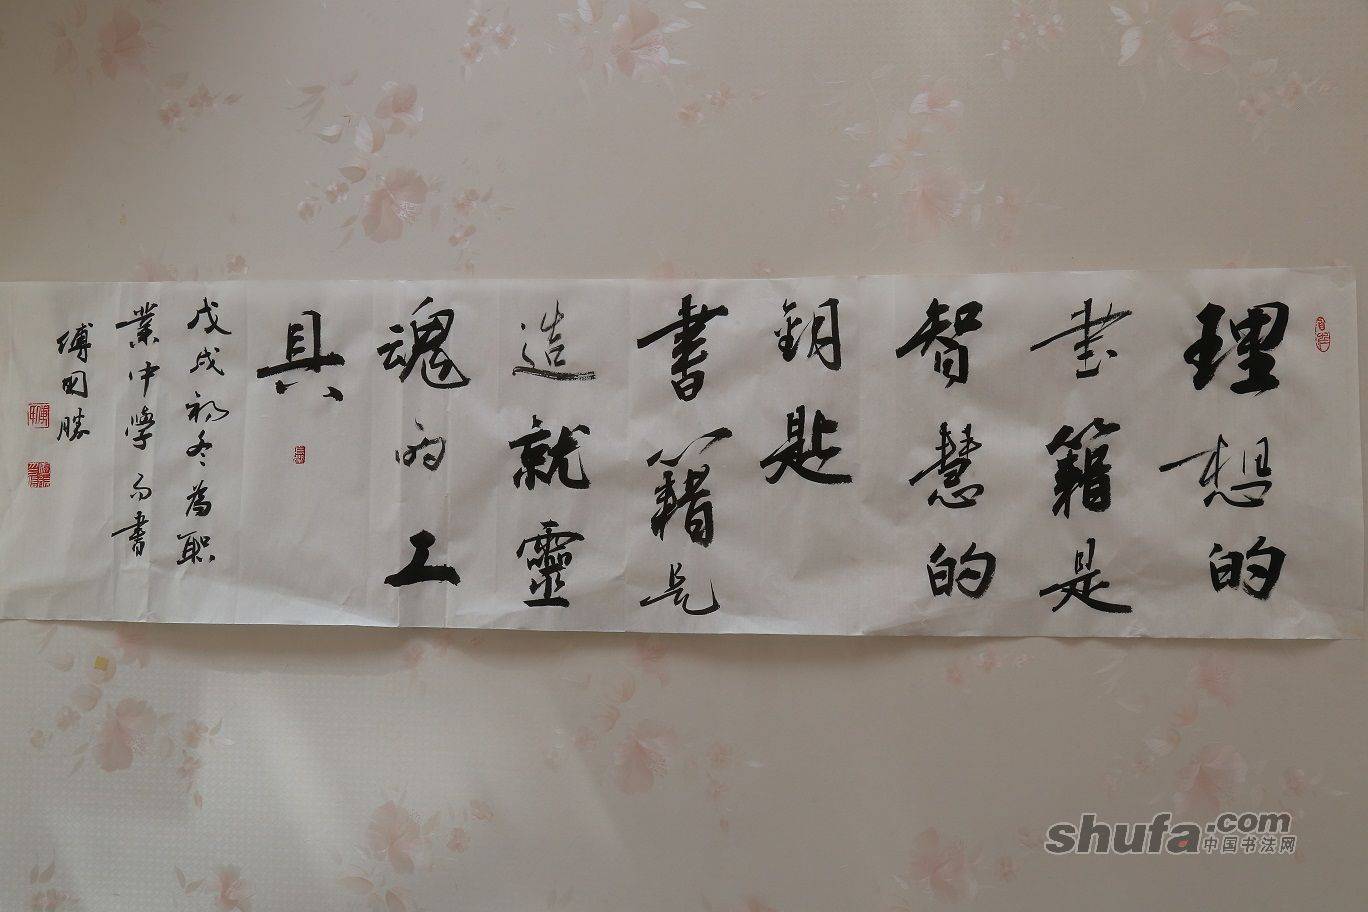 理想的
书籍是
智慧的
钥匙
書籍是
造就靈
魂的工
具
戊戌初冬為职
業中學而書
傅国勝
shufa.com
中国书法网